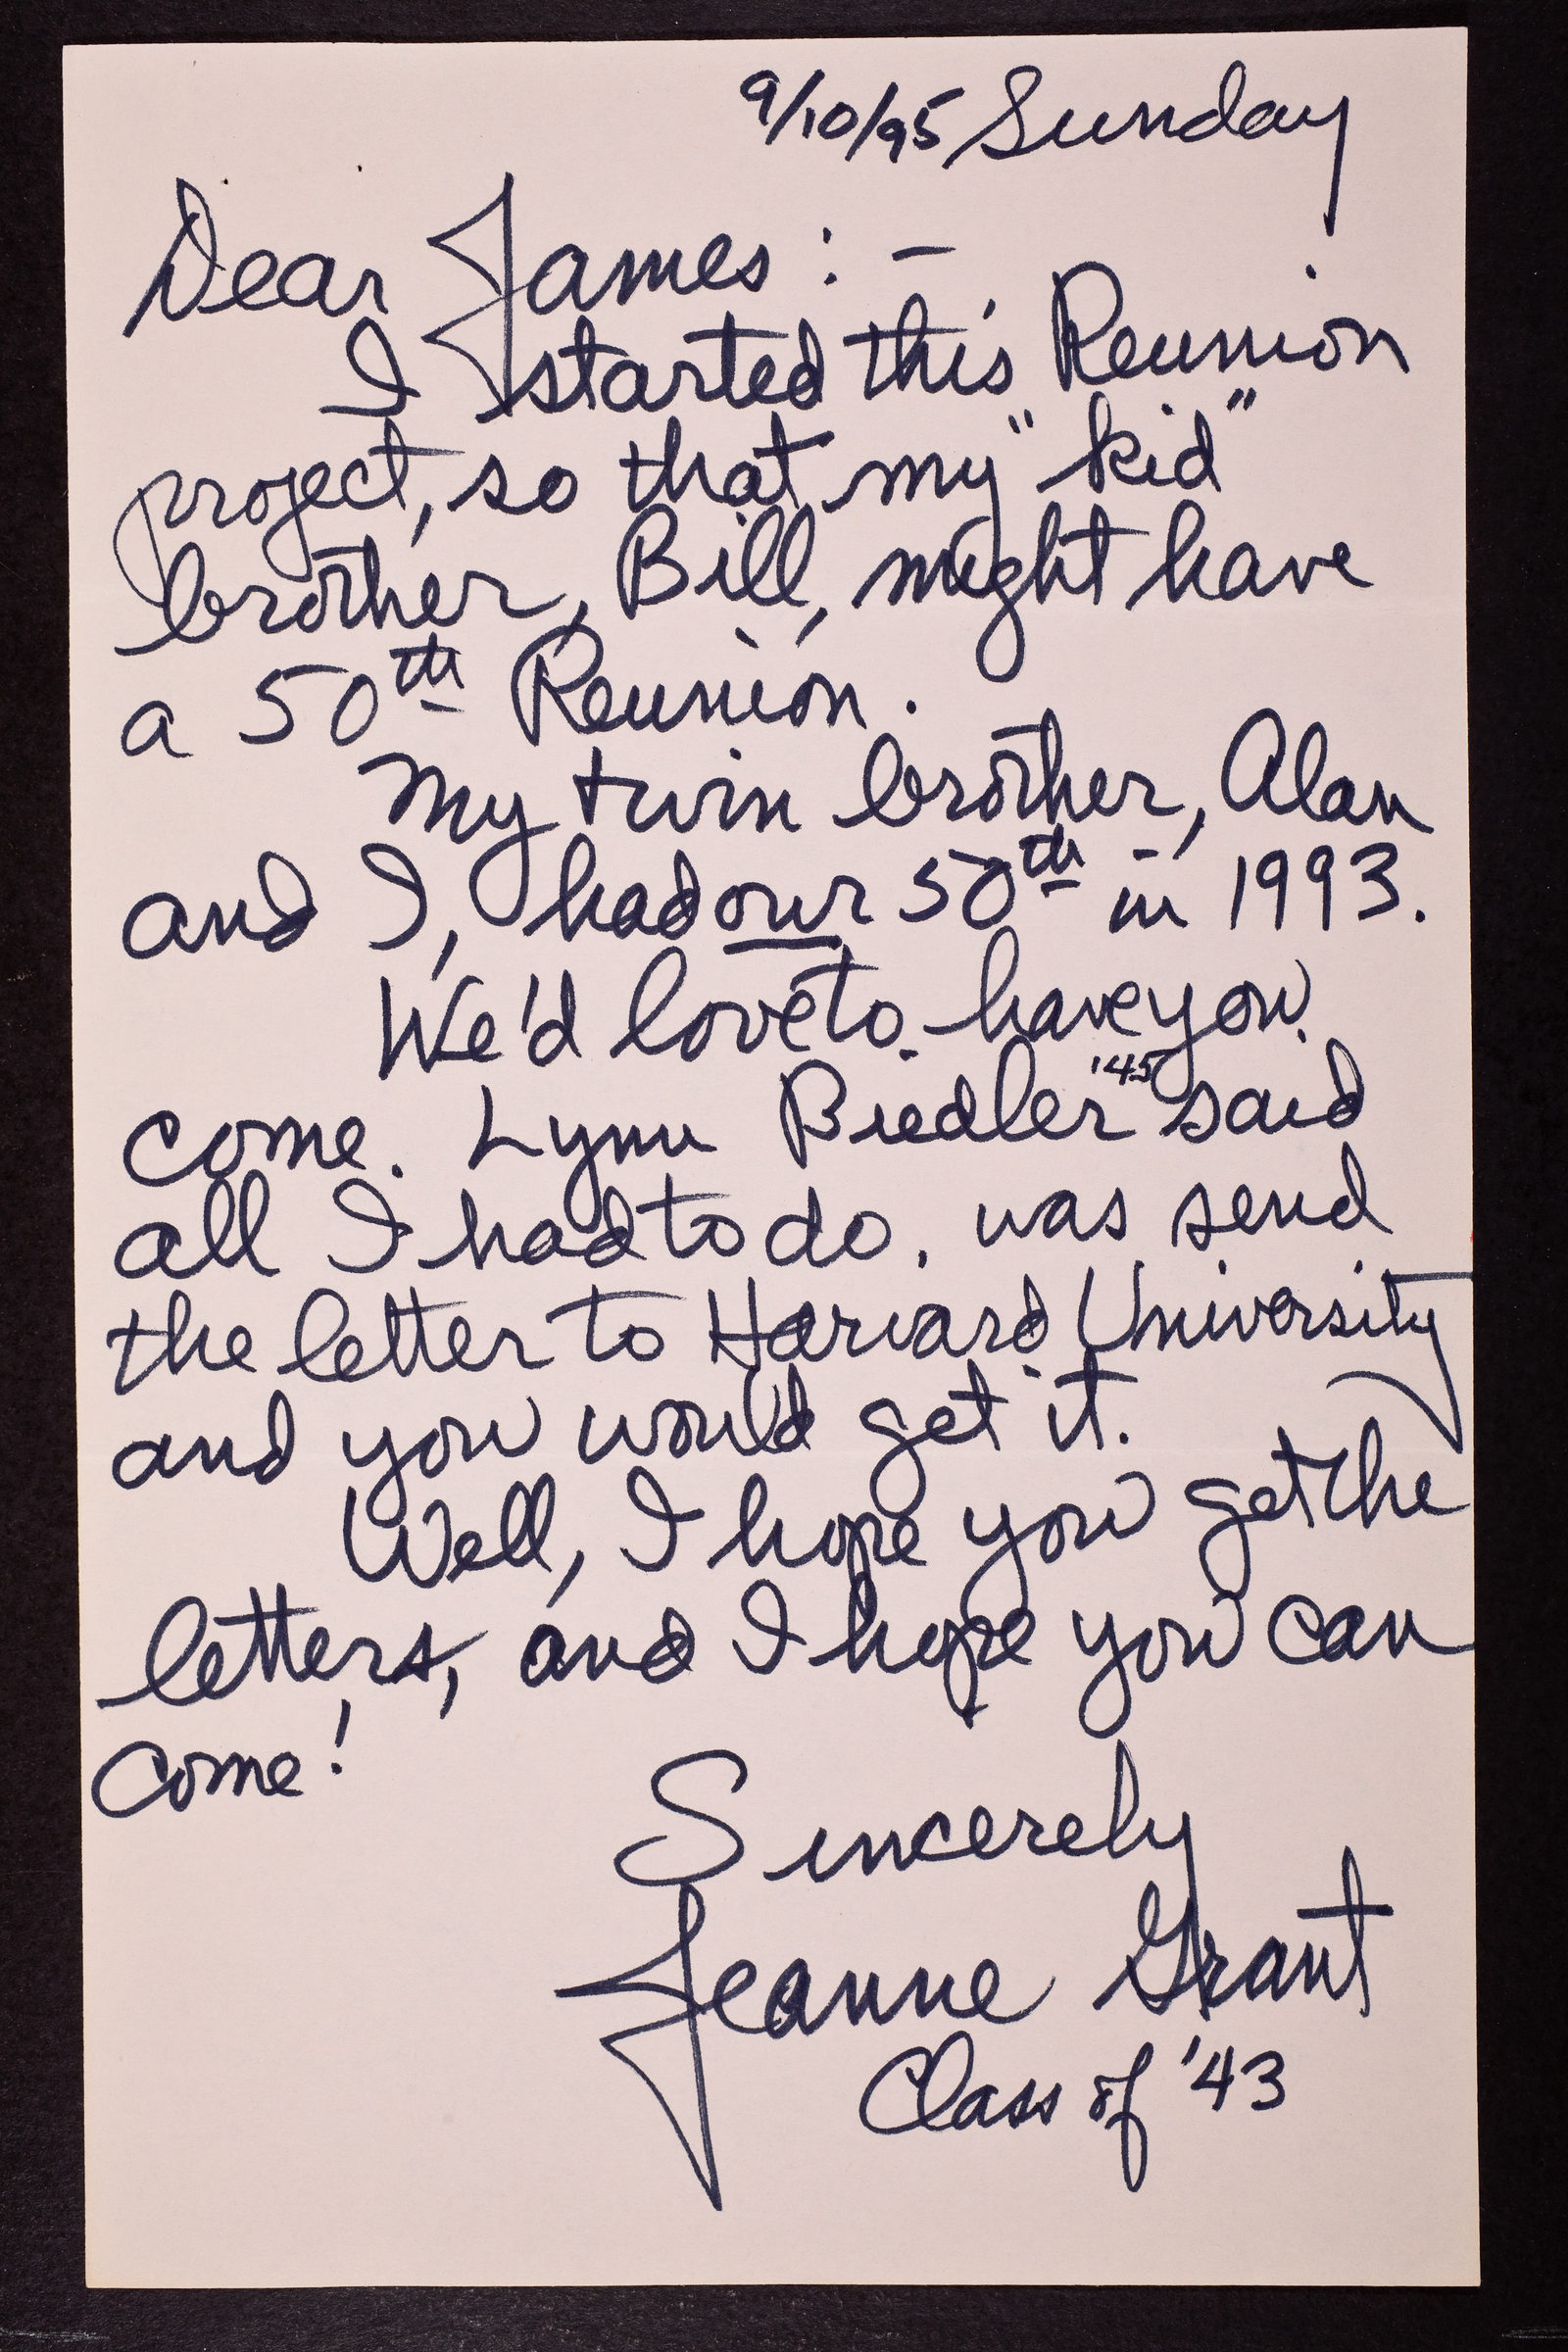 9/10/95 Sunday
Dear James : –
I started this Reunion
project, so that my "kid"
brother, Bill, might have
a 50th Reunion.
My twin brother, Alan
and I, had our 50th in 1993.
We'd love to have you
come. Lynn Biedler '45 said
all I had to do, was send
the letter to Harvard University
and you would get it.
Well, I hope you get the
letters, and I hope you can
come!
Sincerely
Jeanne Grant
Class of '43